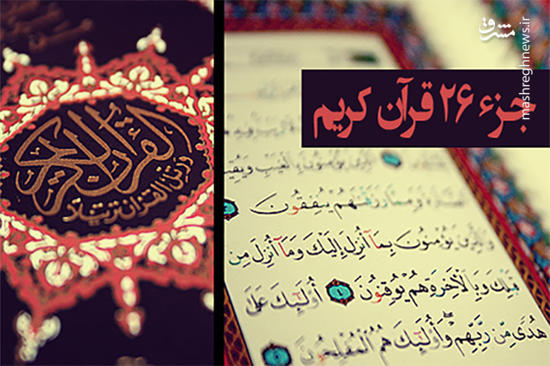 مشرق
mashreghnews.ir
جزء ۲۶ قرآن کریم
القرآن الكريم
ورتل القرآن ترتيلا
وَمِمَّا رَزَقْنَٰهُمْ يُنفِقُونَ ٣
وَالَّذِينَ يُؤْمِنُونَ بِمَا أُنزِلَ إِلَيْكَ وَمَا أُنزِلَ مِن
قَبْلِكَ وَبِالْآخِرَةِ هُمْ يُوقِنُونَ ٤ أُولَٰئِكَ عَلَىٰ
هُدًى مِّن رَّبِّهِمْ ۖ وَأُولَٰئِكَ هُمُ الْمُفْلِحُونَ ٥